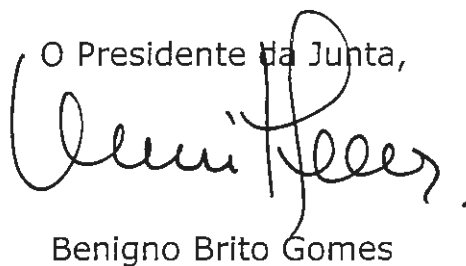 O Presidente da Junta,
Benigno Brito Gomes